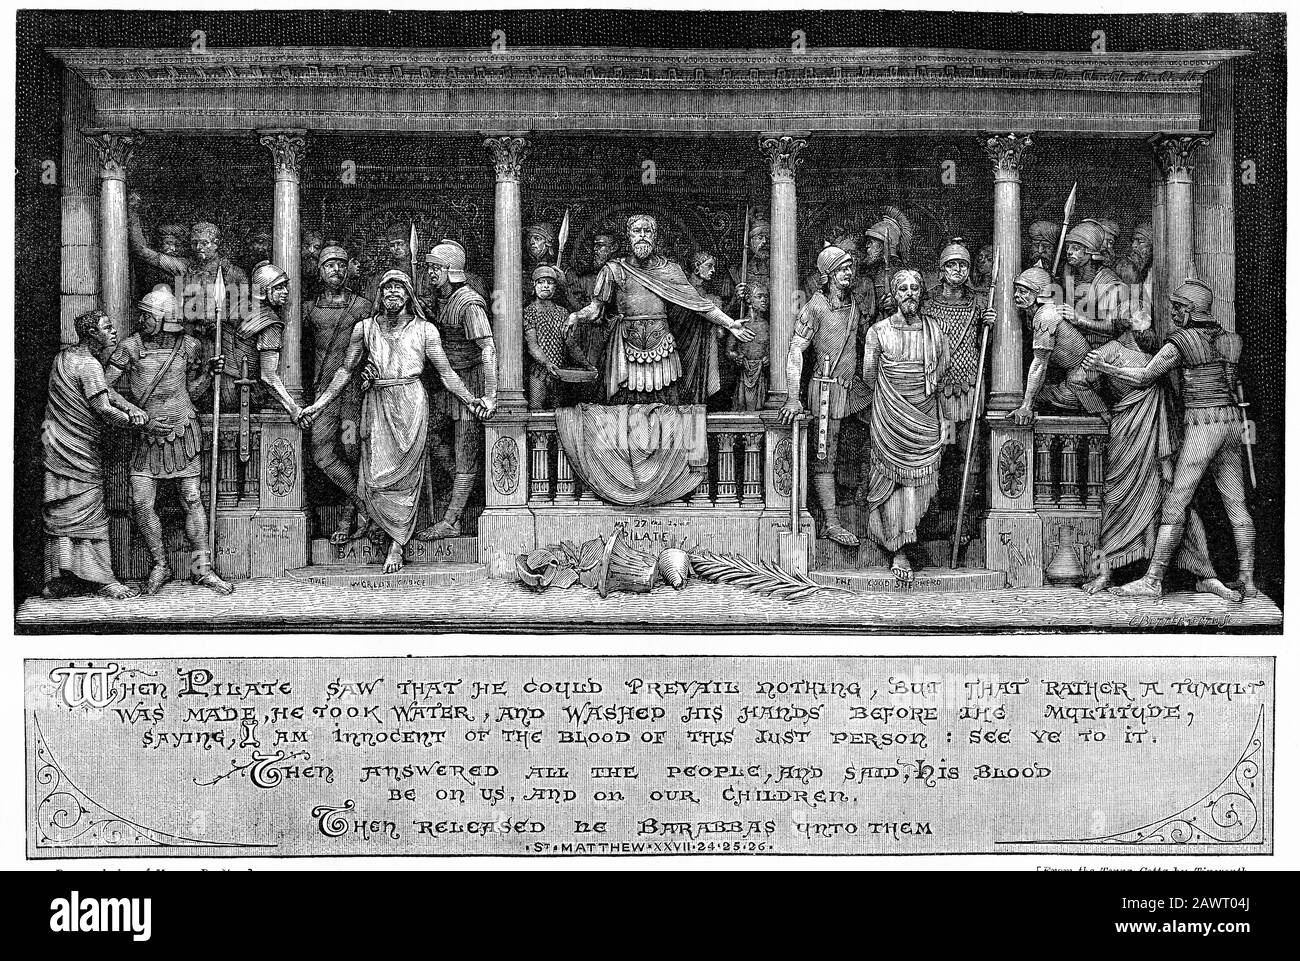 BARABBAS
THE WORLD'S CHOICE
MAT 27
PILATE
THE GOOD SHEPHERD
WHEN PILATE SAW THAT HE COULD PREVAIL NOTHING, BUT THAT RATHER A TUMULT
WAS MADE, HE TOOK WATER, AND WASHED HIS HANDS BEFORE THE MULTITUDE,
SAYING, I AM INNOCENT OF THE BLOOD OF THIS JUST PERSON: SEE YE TO IT.
THEN ANSWERED ALL THE PEOPLE, AND SAID, HIS BLOOD
BE ON US, AND ON OUR CHILDREN.
THEN RELEASED HE BARABBAS UNTO THEM
· ST. MATTHEW · XXVII · 24 · 25 · 26 ·
[From the Terra Cotta by Tinworth
alamy
Image ID: 2AWT04J
www.alamy.com